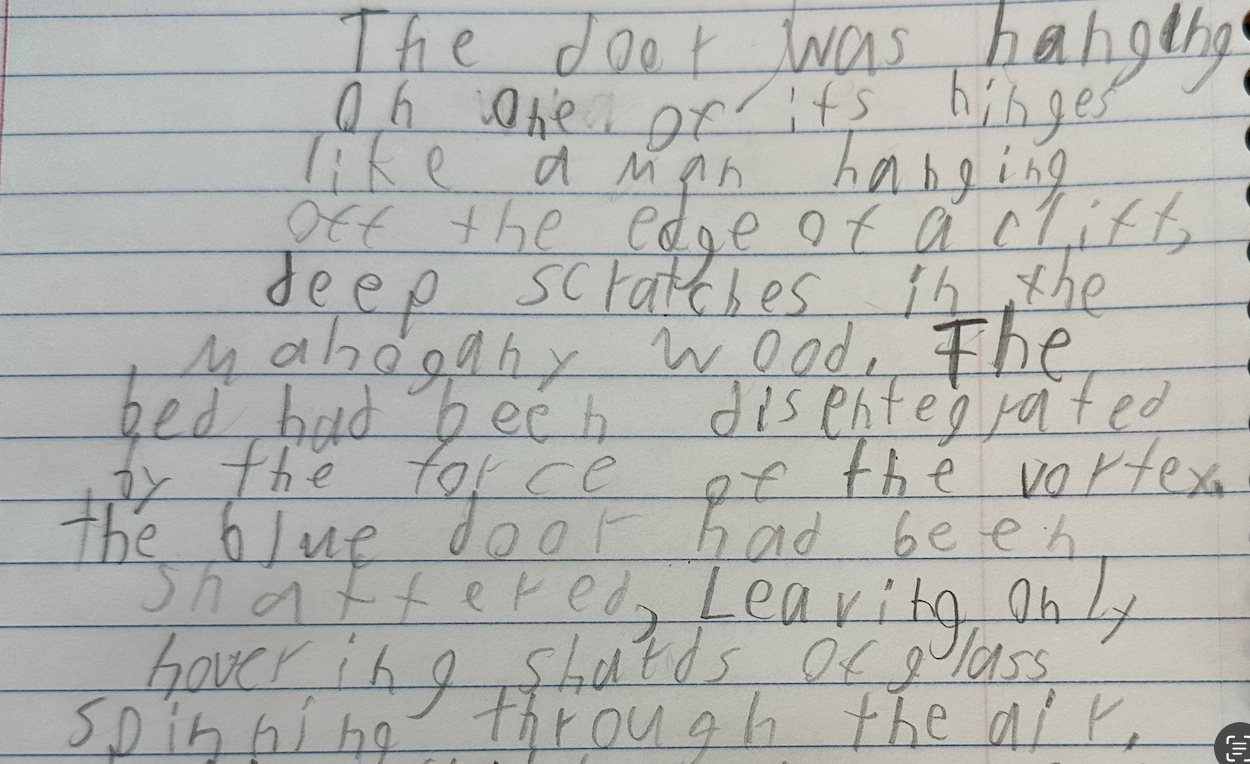 The door was hanging
on one of its hinges
like a man hanging
off the edge of a cliff,
deep scratches in the
mahogany wood. The
bed had been disentegrated
by the force of the vortex.
the blue door had been
shattered, Leaving only
hovering shards of glass
spinning through the air.